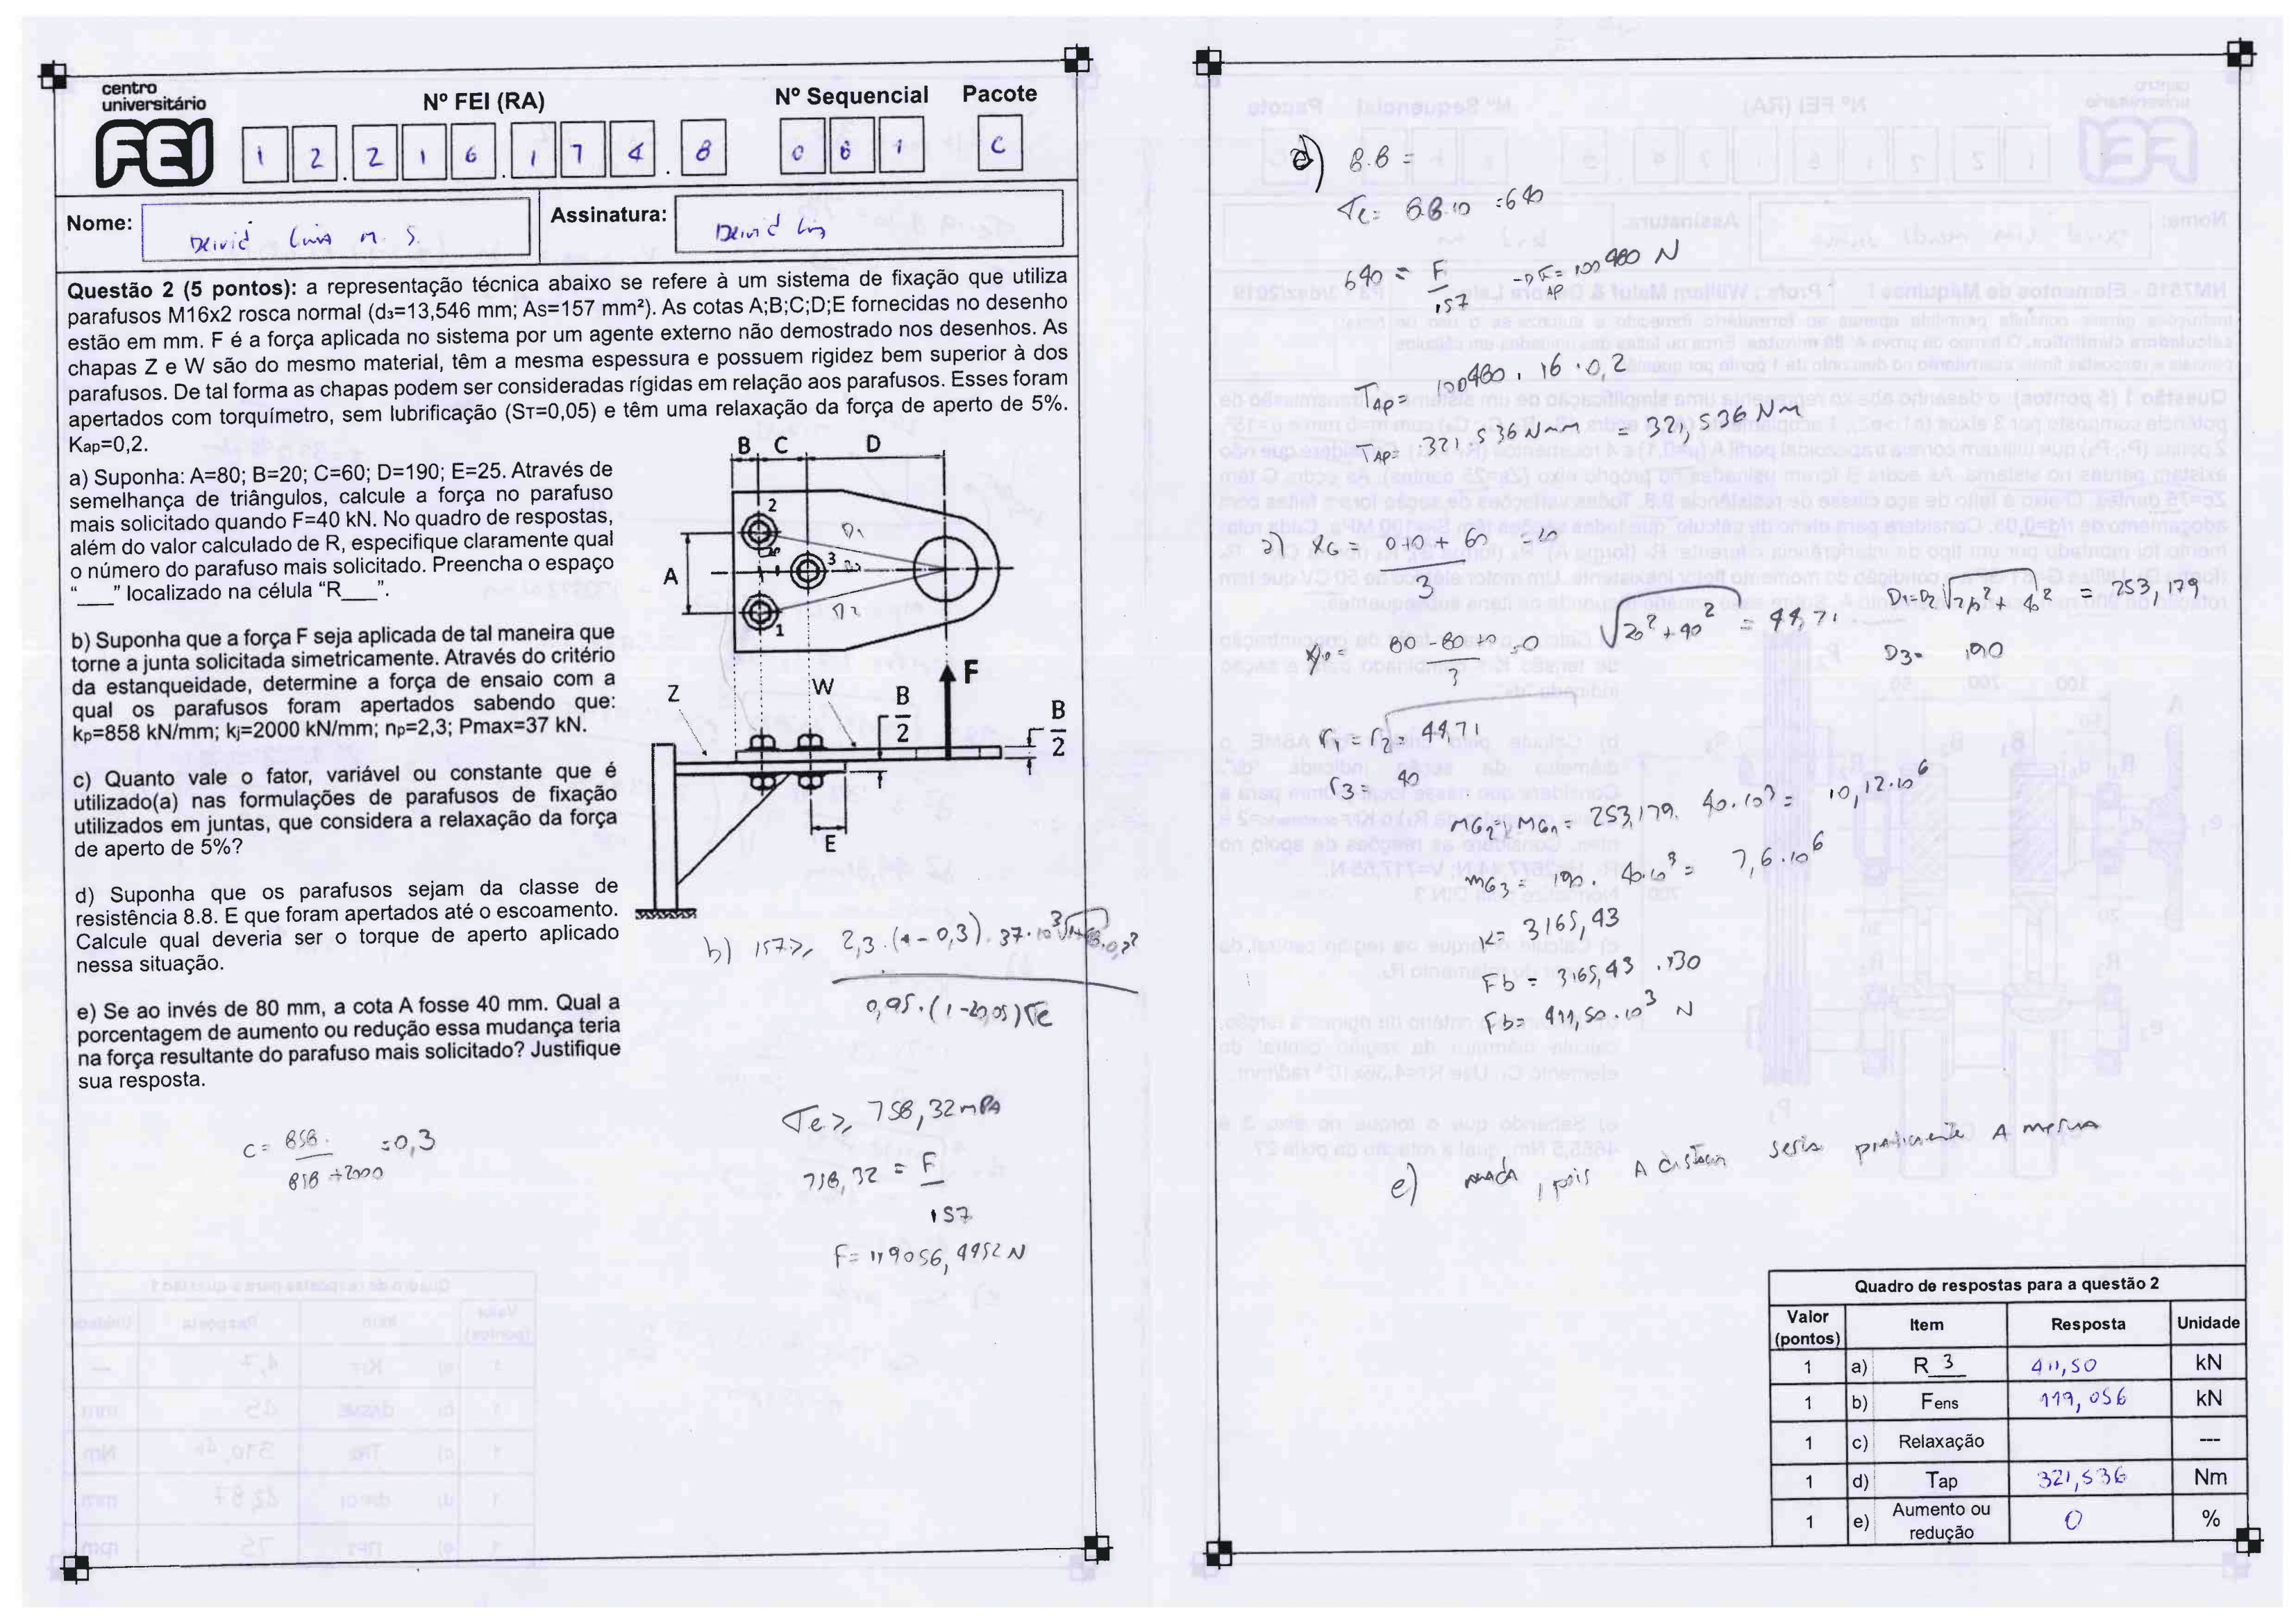 centro
universitário
FEI
Nº FEI (RA)
Nº Sequencial
Pacote
1 2 . 2 1 6 . 1 7 4 . 8
0 6 1
C
Nome:
Assinatura:
Questão 2 (5 pontos): a representação técnica abaixo se refere à um sistema de fixação que utiliza
parafusos M16x2 rosca normal (d₃=13,546 mm; As=157 mm²). As cotas A;B;C;D;E fornecidas no desenho
estão em mm. F é a força aplicada no sistema por um agente externo não demostrado nos desenhos. As
chapas Z e W são do mesmo material, têm a mesma espessura e possuem rigidez bem superior à dos
parafusos. De tal forma as chapas podem ser consideradas rígidas em relação aos parafusos. Esses foram
apertados com torquímetro, sem lubrificação (Sᴛ=0,05) e têm uma relaxação da força de aperto de 5%.
Kap=0,2.
a) Suponha: A=80; B=20; C=60; D=190; E=25. Através de
semelhança de triângulos, calcule a força no parafuso
mais solicitado quando F=40 kN. No quadro de respostas,
além do valor calculado de R, especifique claramente qual
o número do parafuso mais solicitado. Preencha o espaço
"___" localizado na célula "R___".
b) Suponha que a força F seja aplicada de tal maneira que
torne a junta solicitada simetricamente. Através do critério
da estanqueidade, determine a força de ensaio com a
qual os parafusos foram apertados sabendo que:
kp=858 kN/mm; kj=2000 kN/mm; np=2,3; Pmax=37 kN.
c) Quanto vale o fator, variável ou constante que é
utilizado(a) nas formulações de parafusos de fixação
utilizados em juntas, que considera a relaxação da força
de aperto de 5%?
d) Suponha que os parafusos sejam da classe de
resistência 8.8. E que foram apertados até o escoamento.
Calcule qual deveria ser o torque de aperto aplicado
nessa situação.
e) Se ao invés de 80 mm, a cota A fosse 40 mm. Qual a
porcentagem de aumento ou redução essa mudança teria
na força resultante do parafuso mais solicitado? Justifique
sua resposta.
B C D
2
D1
3
A
D2
1
F
Z
W
B/2
B/2
E
b) 157 ≥ 2,3 . (1 - 0,3) . 37 . 10³
0,95 . (1-0,05) σe
σe ≥ 758,32 MPA
758,32 = F/157
F = 119056,4952 N
c = 858 / 858 + 2000 = 0,3
d) 8.8 =
σe = 8.8.10 = 640
640 = F/157 → Fap = 100480 N
TAP = 100480 . 16 . 0,2
TAP = 321.536 Nmm = 321,536 Nm
a) XG = 0+0+60 / 3 = 20
80 - 80 + 0 / 3 = 0
√20² + 40² = 44,71
D1=D2 = 253,179
D3 = 190
r1 = r2 = 44,71
r3 = 40
MG2 = MG1 = 253,179 . 40.10³ = 10,12.10⁶
MG3 = 190 . 40.10³ = 7,6.10⁶
K = 3165,43
Fb = 3165,43 . 130
Fb = 411,50.10³ N
e) nada, pois A seria praticamente A mesma
Quadro de respostas para a questão 2
Valor (pontos) Item Resposta Unidade
1 a) R 3 411,50 kN
1 b) Fens 119,056 kN
1 c) Relaxação ---
1 d) Tap 321,536 Nm
1 e) Aumento ou redução 0 %